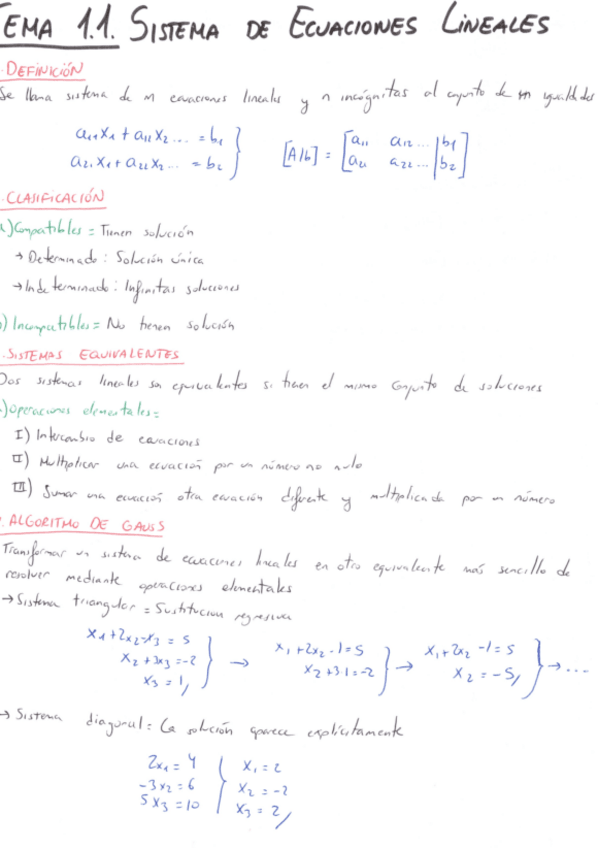 TEMA 1.1. SISTEMA DE ECUACIONES LINEALES
. DEFINICIÓN
Se llama sistema de m ecuaciones lineales y n incógnitas al conjunto de m igualdades
a₁₁x₁ + a₁₂x₂ ... = b₁
a₂₁x₁ + a₂₂x₂ ... = b₂
[A|b] = [a₁₁ a₁₂ ... | b₁
a₂₁ a₂₂ ... | b₂]
. CLASIFICACIÓN
a) Compatibles = Tienen solución
→ Determinado : Solución única
→ Indeterminado : Infinitas soluciones
b) Incompatibles = No tienen solución
. SISTEMAS EQUIVALENTES
Dos sistemas lineales son equivalentes si tienen el mismo conjunto de soluciones
a) Operaciones elementales =
I) Intercambio de ecuaciones
II) Multiplicar una ecuación por un número no nulo
III) Sumar una ecuación otra ecuación diferente y multiplicada por un número
. ALGORITMO DE GAUSS
Transformar un sistema de ecuaciones lineales en otro equivalente más sencillo de
resolver mediante operaciones elementales
→ Sistema triangular = Sustitucion regresiva
x₁ + 2x₂ - x₃ = 5
x₂ + 3x₃ = -2
x₃ = 1,
→
x₁ + 2x₂ - 1 = 5
x₂ + 3·1 = -2
→
x₁ + 2x₂ - 1 = 5
x₂ = -5,
→ ...
→ Sistema diagonal = La solución aparece explícitamente
2x₁ = 4
-3x₂ = 6
5x₃ = 10
x₁ = 2
x₂ = -2
x₃ = 2,